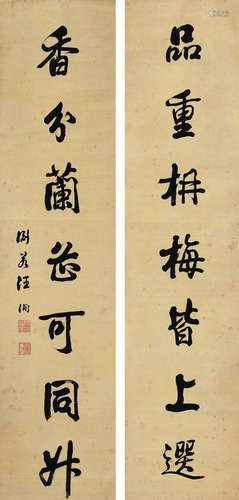 品重枬梅皆上選
香分蘭芷可同升